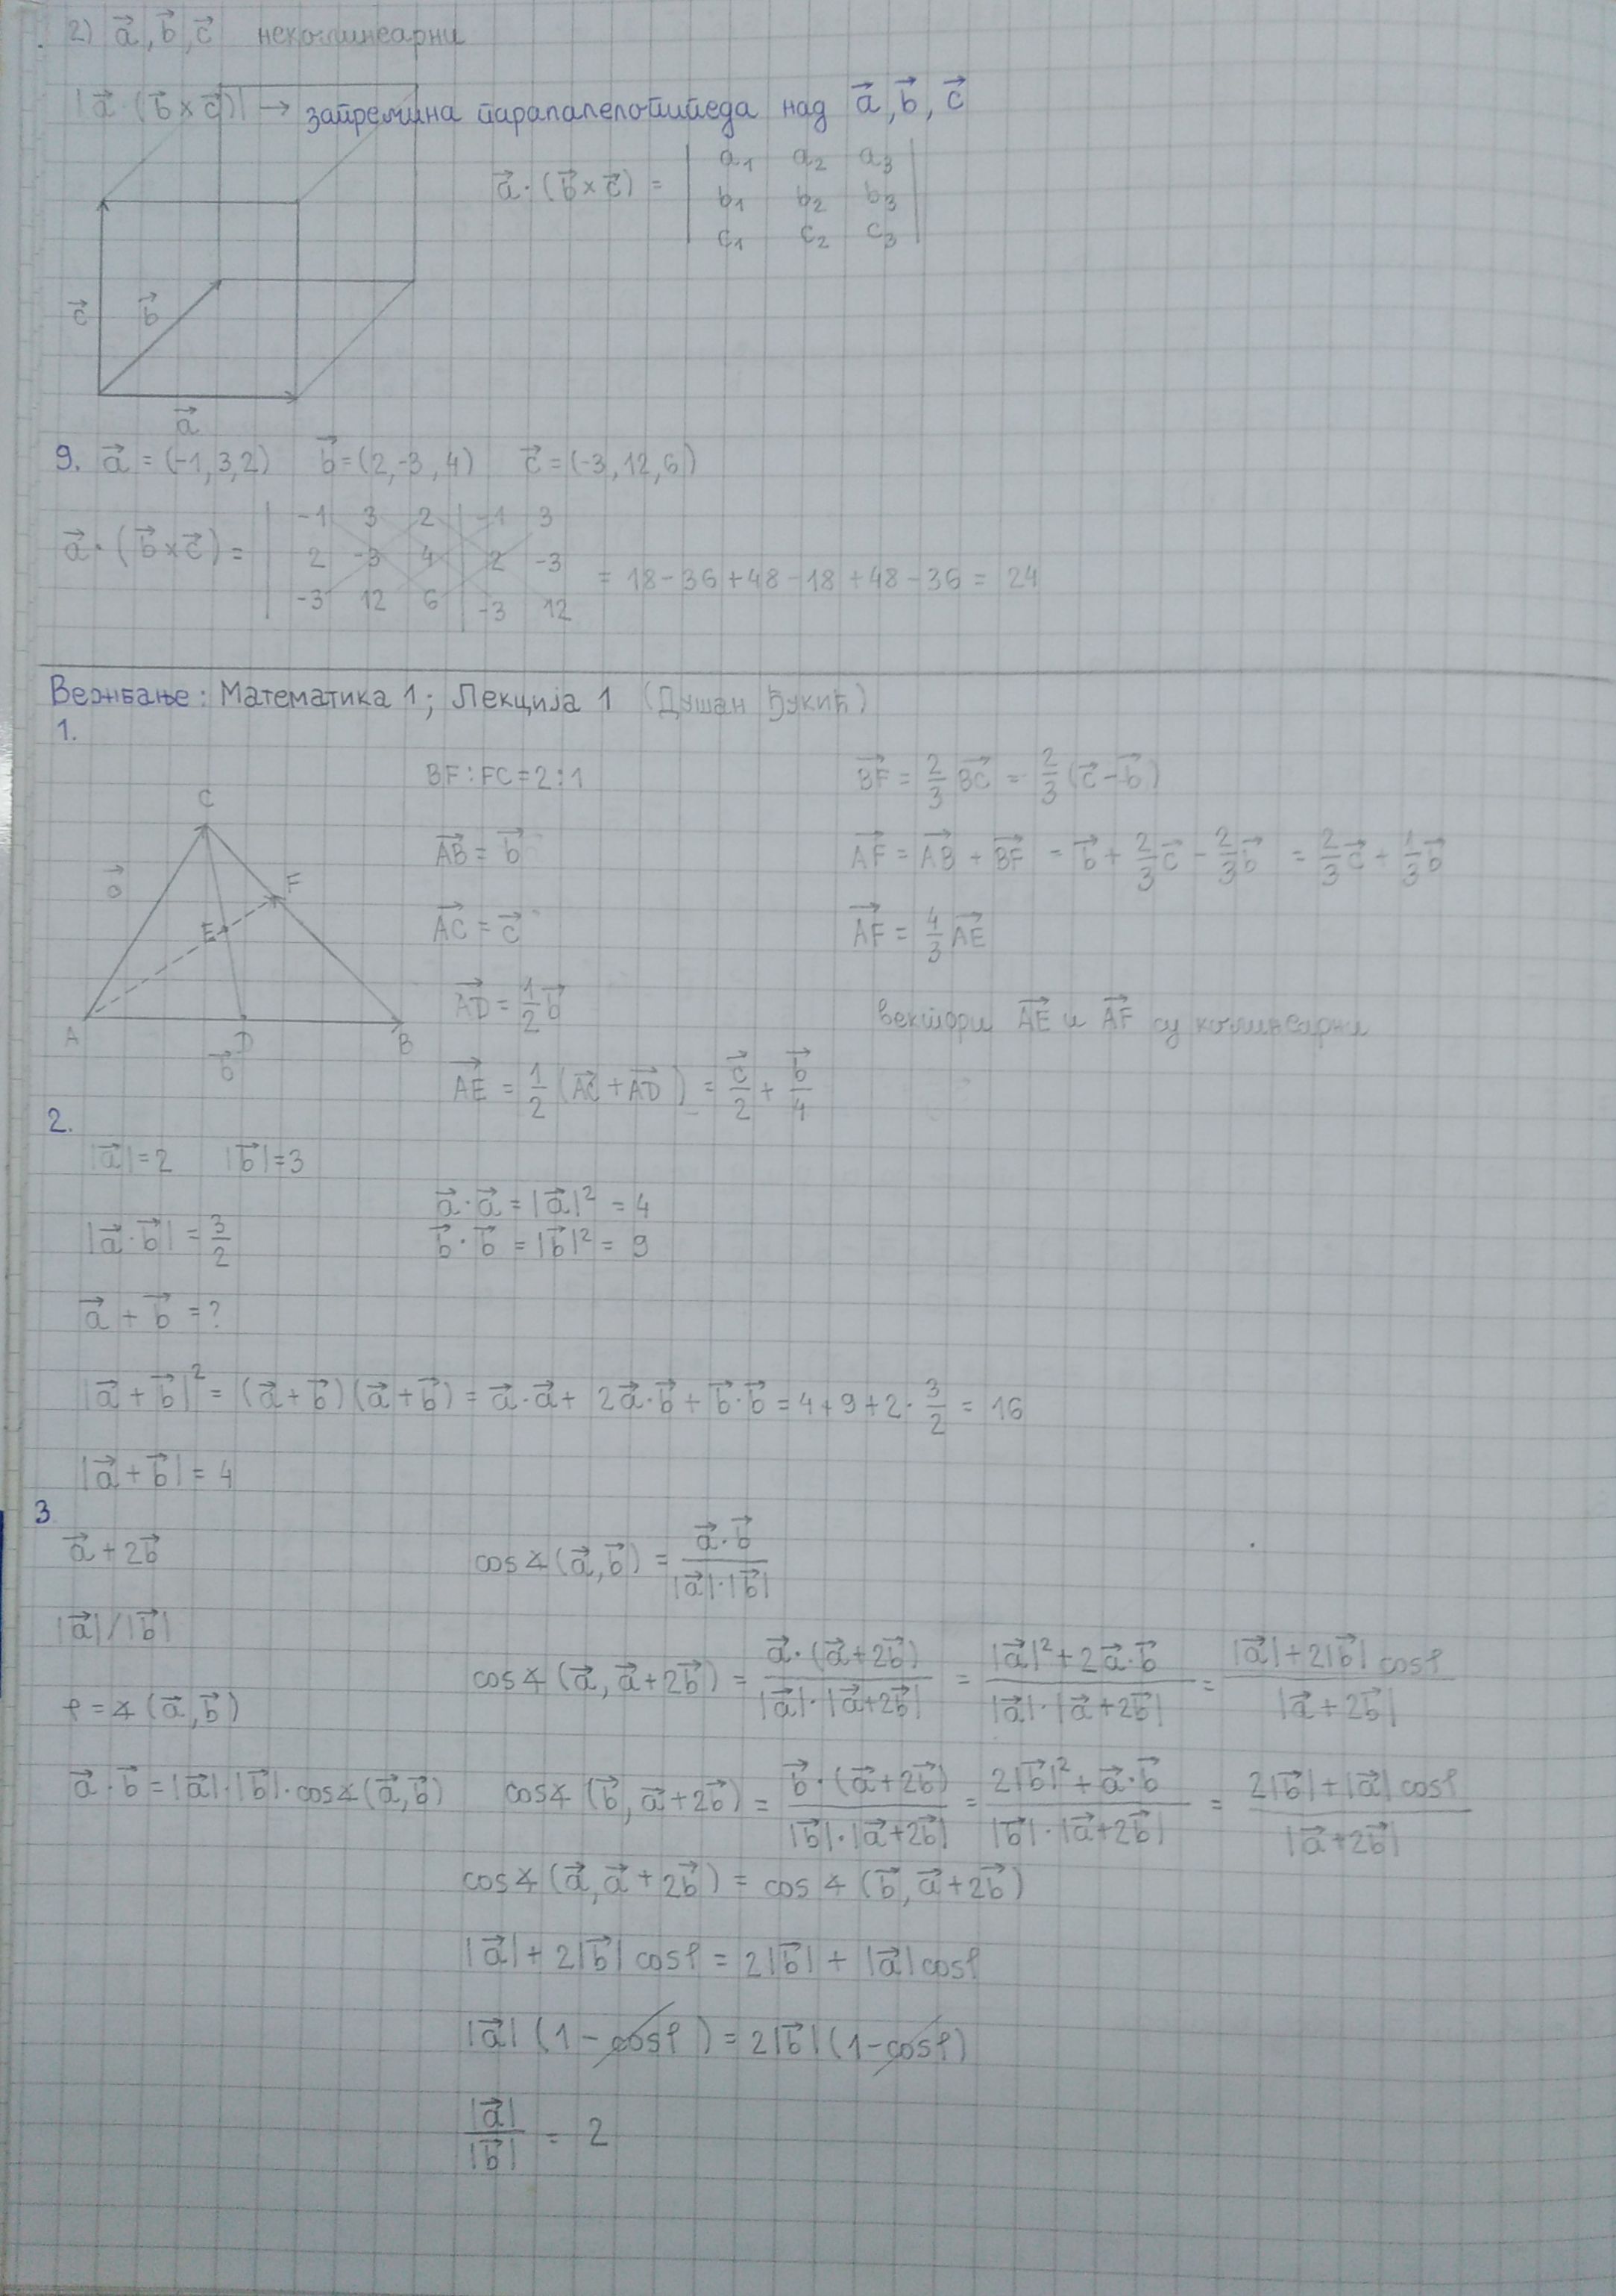 2) a⃗, b⃗, c⃗ неколинеарни
|a⃗·(b⃗×c⃗)| → запремина паралелопипеда над a⃗, b⃗, c⃗
a⃗·(b⃗×c⃗) = | a₁ a₂ a₃
b₁ b₂ b₃
c₁ c₂ c₃ |
c⃗ b⃗
a⃗
9. a⃗ = (-1, 3, 2) b⃗ = (2, -3, 4) c⃗ = (-3, 12, 6)
a⃗·(b⃗×c⃗) = | -1 3 2 | -1 3
2 -3 4 | 2 -3
-3 12 6 | -3 12
= 18 - 36 + 48 - 18 + 48 - 36 = 24
Вежбање: Математика 1; Лекција 1 (Душан Ђукић)
1.
C
F
E
A D B
b⃗
BF : FC = 2 : 1
AB⃗ = b⃗
AC⃗ = c⃗
AD⃗ = 1/2 b⃗
AE⃗ = 1/2 (AC⃗ + AD⃗) = c⃗/2 + b⃗/4
BF⃗ = 2/3 BC⃗ = 2/3 (c⃗ - b⃗)
AF⃗ = AB⃗ + BF⃗ = b⃗ + 2/3 c⃗ - 2/3 b⃗ = 2/3 c⃗ + 1/3 b⃗
AF⃗ = 4/3 AE⃗
вектори AE⃗ и AF⃗ су колинеарни
2.
|a⃗| = 2 |b⃗| = 3
|a⃗·b⃗| = 3/2
a⃗·a⃗ = |a⃗|² = 4
b⃗·b⃗ = |b⃗|² = 9
a⃗ + b⃗ = ?
|a⃗ + b⃗|² = (a⃗ + b⃗)(a⃗ + b⃗) = a⃗·a⃗ + 2a⃗·b⃗ + b⃗·b⃗ = 4 + 9 + 2·3/2 = 16
|a⃗ + b⃗| = 4
3
a⃗ + 2b⃗
|a⃗| / |b⃗|
φ = ∡(a⃗, b⃗)
a⃗·b⃗ = |a⃗|·|b⃗|·cos∡(a⃗, b⃗)
cos∡(a⃗, b⃗) = a⃗·b⃗ / |a⃗|·|b⃗|
cos∡(a⃗, a⃗+2b⃗) = a⃗·(a⃗+2b⃗) / |a⃗|·|a⃗+2b⃗| = |a⃗|² + 2a⃗·b⃗ / |a⃗|·|a⃗+2b⃗| = |a⃗| + 2|b⃗| cosφ / |a⃗+2b⃗|
cos∡(b⃗, a⃗+2b⃗) = b⃗·(a⃗+2b⃗) / |b⃗|·|a⃗+2b⃗| = 2|b⃗|² + a⃗·b⃗ / |b⃗|·|a⃗+2b⃗| = 2|b⃗| + |a⃗| cosφ / |a⃗+2b⃗|
cos∡(a⃗, a⃗+2b⃗) = cos∡(b⃗, a⃗+2b⃗)
|a⃗| + 2|b⃗| cosφ = 2|b⃗| + |a⃗| cosφ
|a⃗| (1 - cosφ) = 2|b⃗| (1 - cosφ)
|a⃗| / |b⃗| = 2